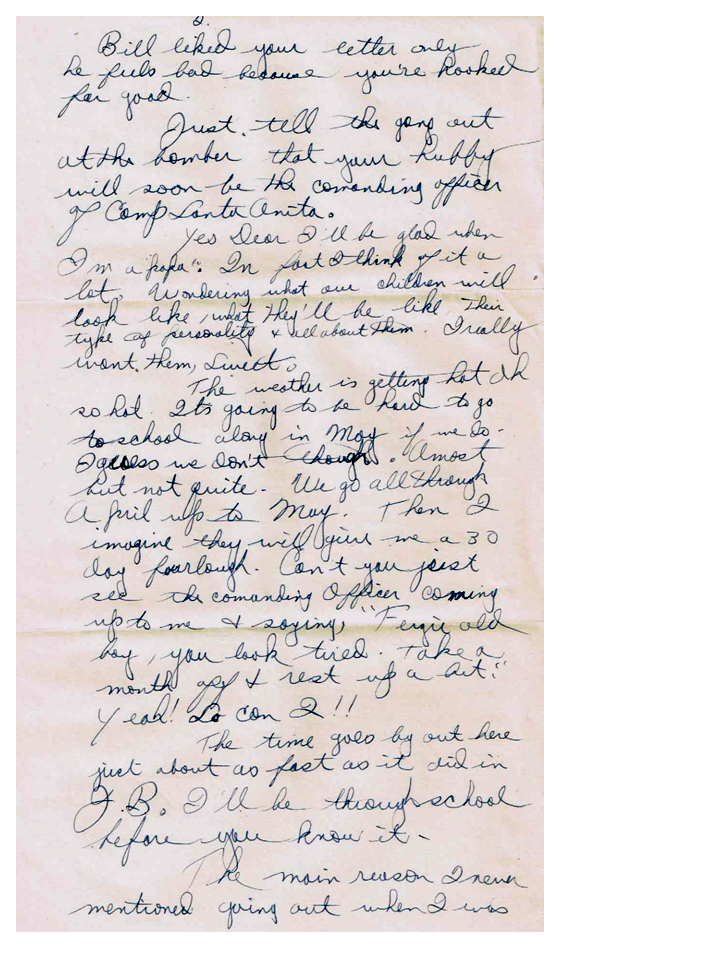 2.
Bill liked your letter only
he feels bad because you're hooked
for good.
Just tell the gang out
at the bomber that your hubby
will soon be the comanding officer
of Camp Santa Anita.
Yes Dear I'll be glad when
I'm a "papa". In fact I think of it a
lot. Wondering what our children will
look like, what they'll be like their
type of personality & all about them. I really
want them, Sweet.
The weather is getting hot oh
so hot. Its going to be hard to go
to school along in May if we do.
I guess we don't though. Almost
but not quite. We go all through
April up to May. Then I
imagine they will give me a 30
day fourlough. Can't you just
see the comanding Officer coming
up to me & saying, "Fergie old
boy, you look tired. Take a
month off & rest up a bit."
Yeah! So can I!!
The time goes by out here
just about as fast as it did in
F.B. I'll be through school
before you know it -
The main reason I never
mentioned going out when I was